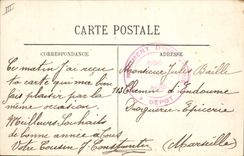 III
CARTE POSTALE
CORRESPONDANCE
ADRESSE
Ce matin J'ai reçu
ta carte qui me bien
fais plaisir par la
même occasion.
Meilleurs Souhaits
de bonne année a tous
Votre Cousin J Constantin
Monsieur Jules Baille
113 Chemin d'Endoume
Epicerie
Marseille
DÉPOT